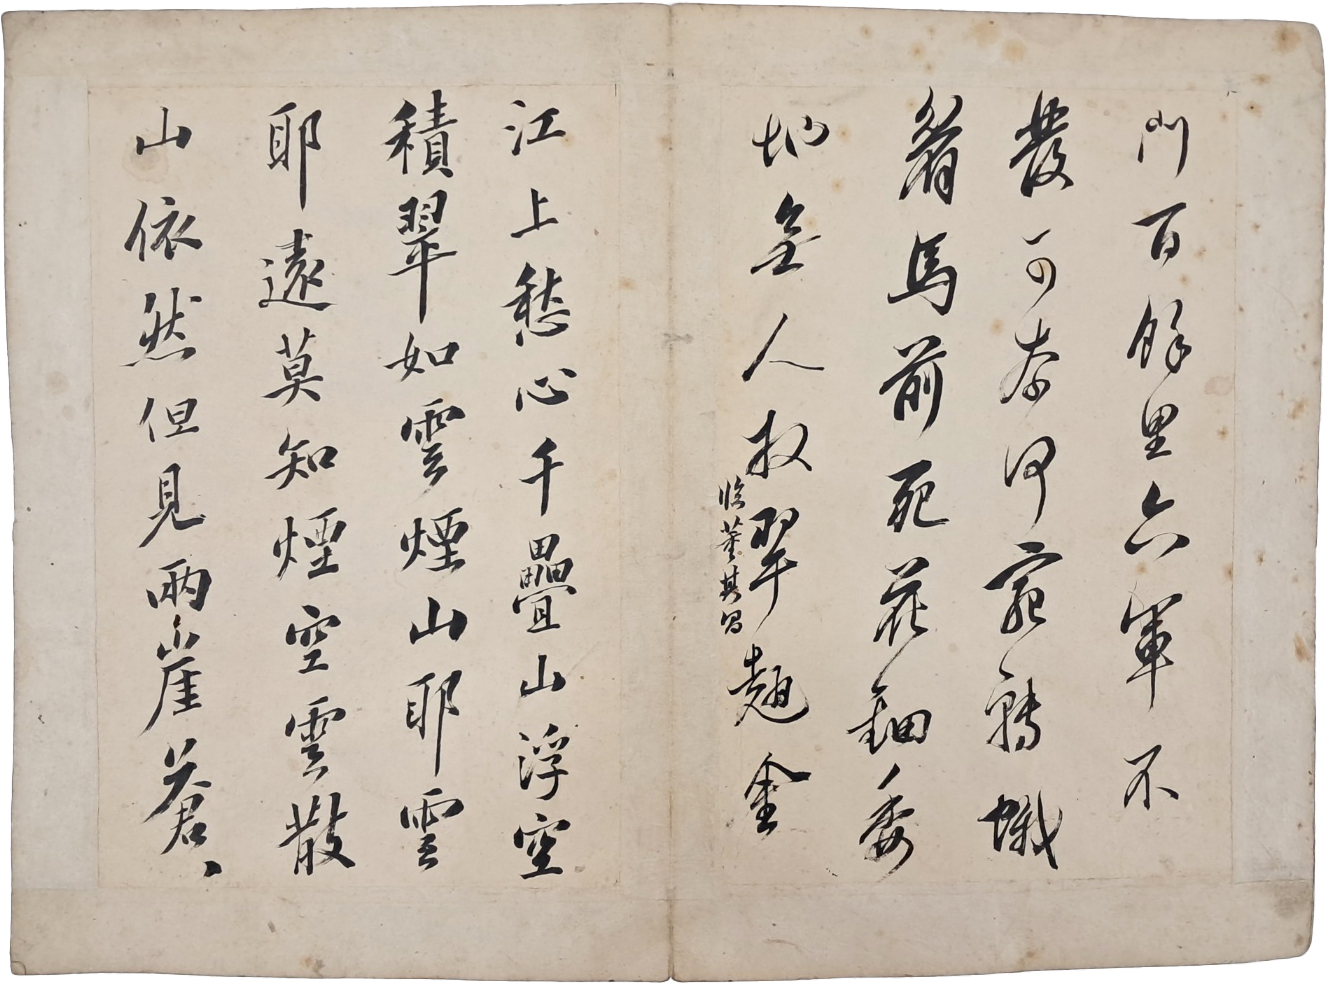 門百餘里六軍不
發可奈何宛轉蛾
眉馬前死花鈿委
地無人收翠翹金
臨董其昌
江上愁心千疊山浮空
積翠如雲煙山耶雲
耶遠莫知煙空雲散
山依然但見兩崖蒼、